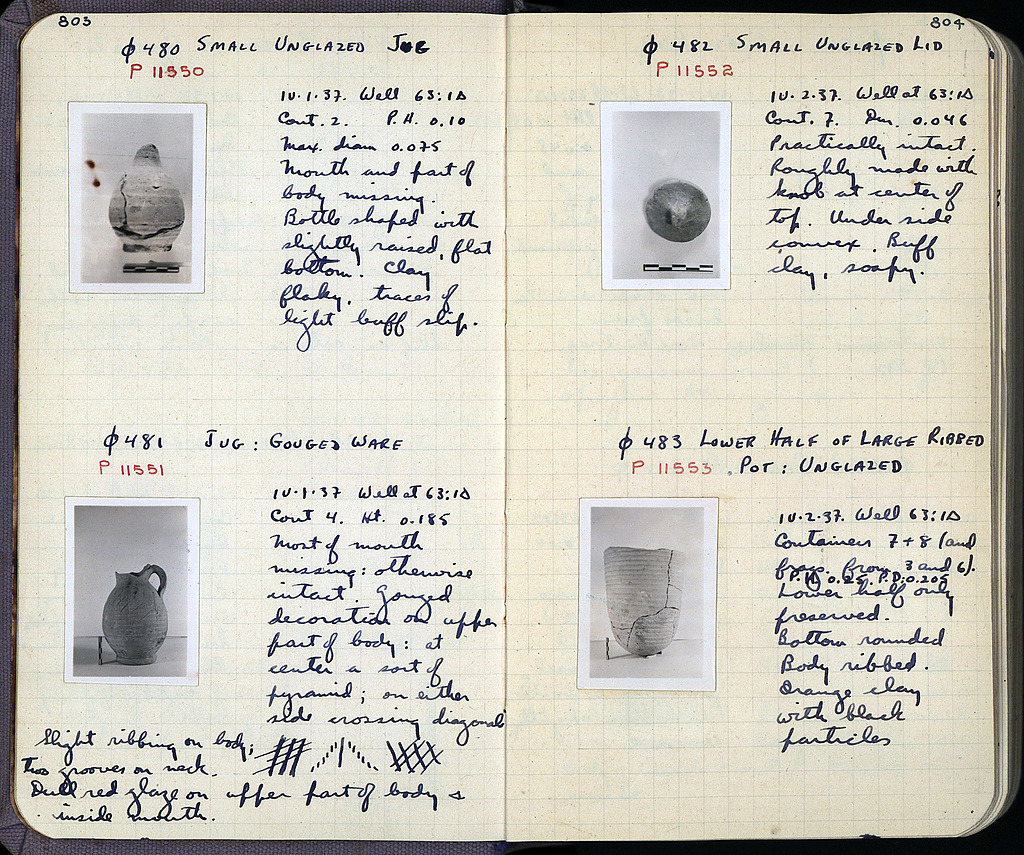 803
ϕ 480 SMALL UNGLAZED JUG
P 11550
IV.1.37. Well 63:1Δ
Cont. 2. P.H. 0.10
Max. diam 0.075
Mouth and part of
body missing.
Bottle shaped with
slightly raised, flat
bottom. Clay
flaky, traces of
light buff slip.
ϕ 481 JUG: GOUGED WARE
P 11551
IV.1.37 Well at 63:1Δ
Cont 4. Ht. 0.185
Most of mouth
missing: otherwise
intact. Gouged
decoration on upper
part of body: at
center a sort of
pyramid; on either
side crossing diagonals
Slight ribbing on body;
Two grooves on neck.
Dull red glaze on upper part of body &
inside mouth.
804
ϕ 482 SMALL UNGLAZED LID
P 11552
IV.2.37. Well at 63:1Δ
Cont. 7. Dm. 0.046
Practically intact.
Roughly made with
knob at center of
top. Under side
convex. Buff
clay, soapy.
ϕ 483 LOWER HALF OF LARGE RIBBED
P 11553 POT: UNGLAZED
IV.2.37. Well 63:1Δ
Containers 7+8 (and
frags. from 3 and 6).
P.H. 0.25, P.D. 0.205
Lower half only
preserved.
Bottom rounded
Body ribbed.
Orange clay
with black
particles